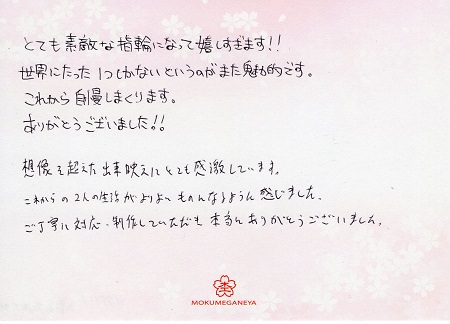 とても素敵な指輪になって嬉しすぎます!!
世界にたった1つしかないというのがまた魅力的です。
これから自慢しまくります。
ありがとうございました!!
想像を超えた出来映えにとても感激しています。
これからの2人の生活がよりよいものになるよう感じました。
ご丁寧に対応・制作していただき本当にありがとうございました。
MOKUMEGANEYA